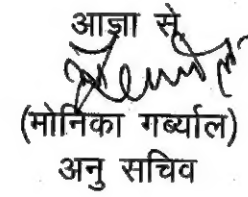 आज्ञा से
(मोनिका गर्ब्याल)
अनु सचिव